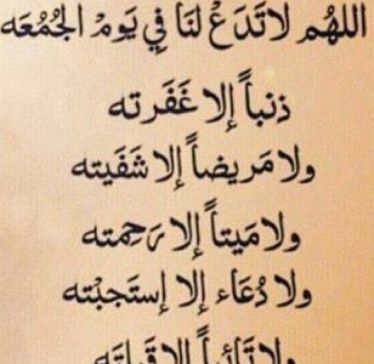 اللهُم لاتَدَعْ لنَا فِي يَومْ الجُمُعَه
ذنباً إلا غَفَرته
ولا مَريضاً إلا شَفَيته
ولا مَيتاً إلا رَحِمته
ولا دُعَاء إلا إستَجبْته
ولا تَائباً إلا قَبلتَه